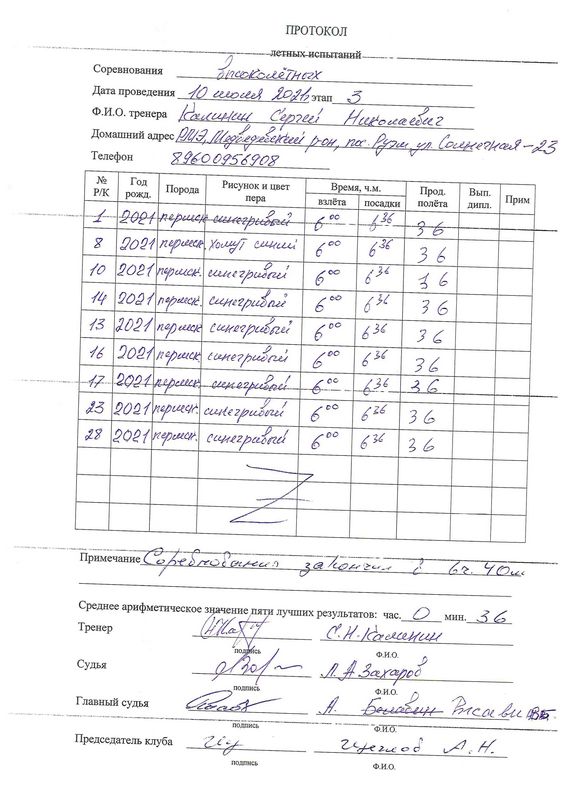 ПРОТОКОЛ
летных испытаний
Соревнования высоколётных
Дата проведения 10 июля 2021г этап 3
Ф.И.О. тренера Калинин Сергей Николаевич
Домашний адрес РМЭ, Медведевский р-он, пос. Руэм ул. Солнечная-23
Телефон 89600956908
№ Р/К Год рожд. Порода Рисунок и цвет пера Время, ч.м. взлёта посадки Прод. полёта Вып. дипл. Прим
1 2021 пермск синегривый 6 00 6 36 36
8 2021 пермск. хомут синий 6 00 6 36 36
10 2021 пермск. синегривый 6 00 6 36 36
14 2021 пермск. синегривый 6 00 6 36 36
13 2021 пермск синегривый 6 00 6 36 36
16 2021 пермск. синегривый 6 00 6 36 36
17 2021 пермск. синегривый 6 00 6 36 36
23 2021 пермск. синегривый 6 00 6 36 36
28 2021 пермск. синегривый 6 00 6 36 36
Примечание Соревнования закончил в 6ч. 40м
Среднее арифметическое значение пяти лучших результатов: час. 0 мин. 36
Тренер С.Н. Калинин
подпись Ф.И.О.
Судья Л.А Захаров
подпись Ф.И.О.
Главный судья А.
подпись Ф.И.О.
Председатель клуба Щеглов А.Н.
подпись Ф.И.О.